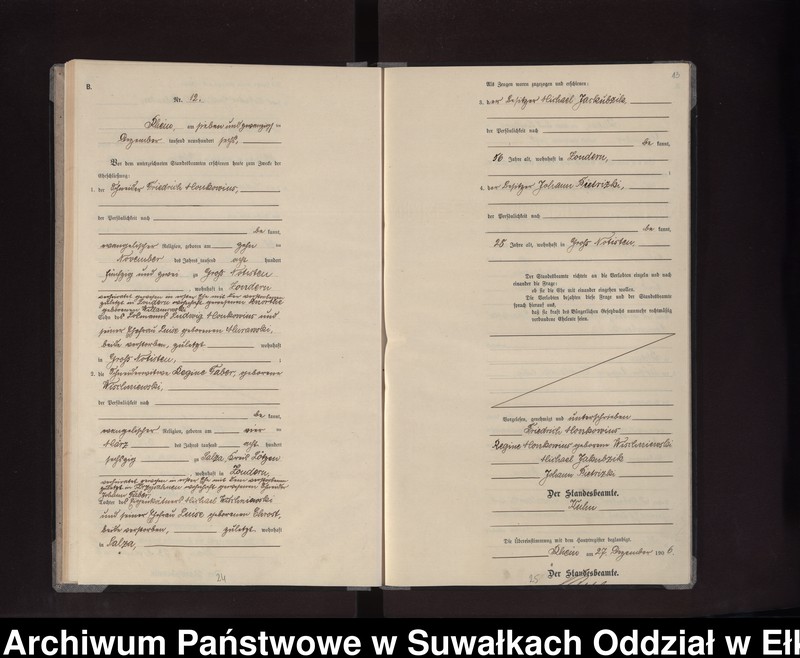 B.
Nr. 12.
Rhein, am sieben und zwanzigsten
Dezember tausend neunhundert sechs,
Vor dem unterzeichneten Standesbeamten erschienen heute zum Zweck der
Eheschließung:
1. der Schneider Friedrich Monkowius,
der Persönlichkeit nach
be kannt,
evangelischer Religion, geboren am zehn ten
November des Jahres tausend acht hundert
fünfzig und zwei zu Groß Notisten
, wohnhaft in Londern
verheiratet gewesen in erster Ehe mit der verstorbenen
zuletzt in Londern wohnhaft gewesenen
geborenen
Sohn des Ludwig Monkowius und
seiner Ehefrau Luise geborenen
beide verstorben, zuletzt wohnhaft
in Groß Notisten, ;
2. die Schneiderwitwe Regine Faber, geborene
Wischniewski,
der Persönlichkeit nach
be kannt,
evangelischer Religion, geboren am vier ten
März des Jahres tausend acht hundert
sechzig zu Salpa, Kreis Lötzen
, wohnhaft in Londern,
verheiratet gewesen in erster Ehe mit dem verstorbenen
zuletzt in wohnhaft gewesenen Schneider
Johann Faber,
Tochter des Michael Wischniewski
und seiner Ehefrau Luise geborenen Chrost,
beide verstorben, zuletzt wohnhaft
in Salpa,
24
13
Als Zeugen waren zugezogen und erschienen:
3. der Besitzer Michael Jackubzik
der Persönlichkeit nach
be kannt,
56 Jahre alt, wohnhaft in Londern,
;
4. der Besitzer Johann Pietrizki,
der Persönlichkeit nach
be kannt,
28 Jahre alt, wohnhaft in Groß Notisten,
Der Standesbeamte richtete an die Verlobten einzeln und nach
einander die Frage:
ob sie die Ehe mit einander eingehen wollen.
Die Verlobten bejahten diese Frage und der Standesbeamte
sprach hierauf aus,
daß sie kraft des Bürgerlichen Gesetzbuchs nunmehr rechtmäßig
verbundene Eheleute seien.
Vorgelesen, genehmigt und unterschrieben
Friedrich Monkowius
Regine Monkowius geborene Wischniewski
Michael Jakubzik
Johann Pietrizki
Der Standesbeamte.
Die Übereinstimmung mit dem Hauptregister beglaubigt.
Rhein am 27. Dezember 190 6.
Der Standesbeamte.
25
Archiwum Państwowe w Suwałkach Oddział w Ełk